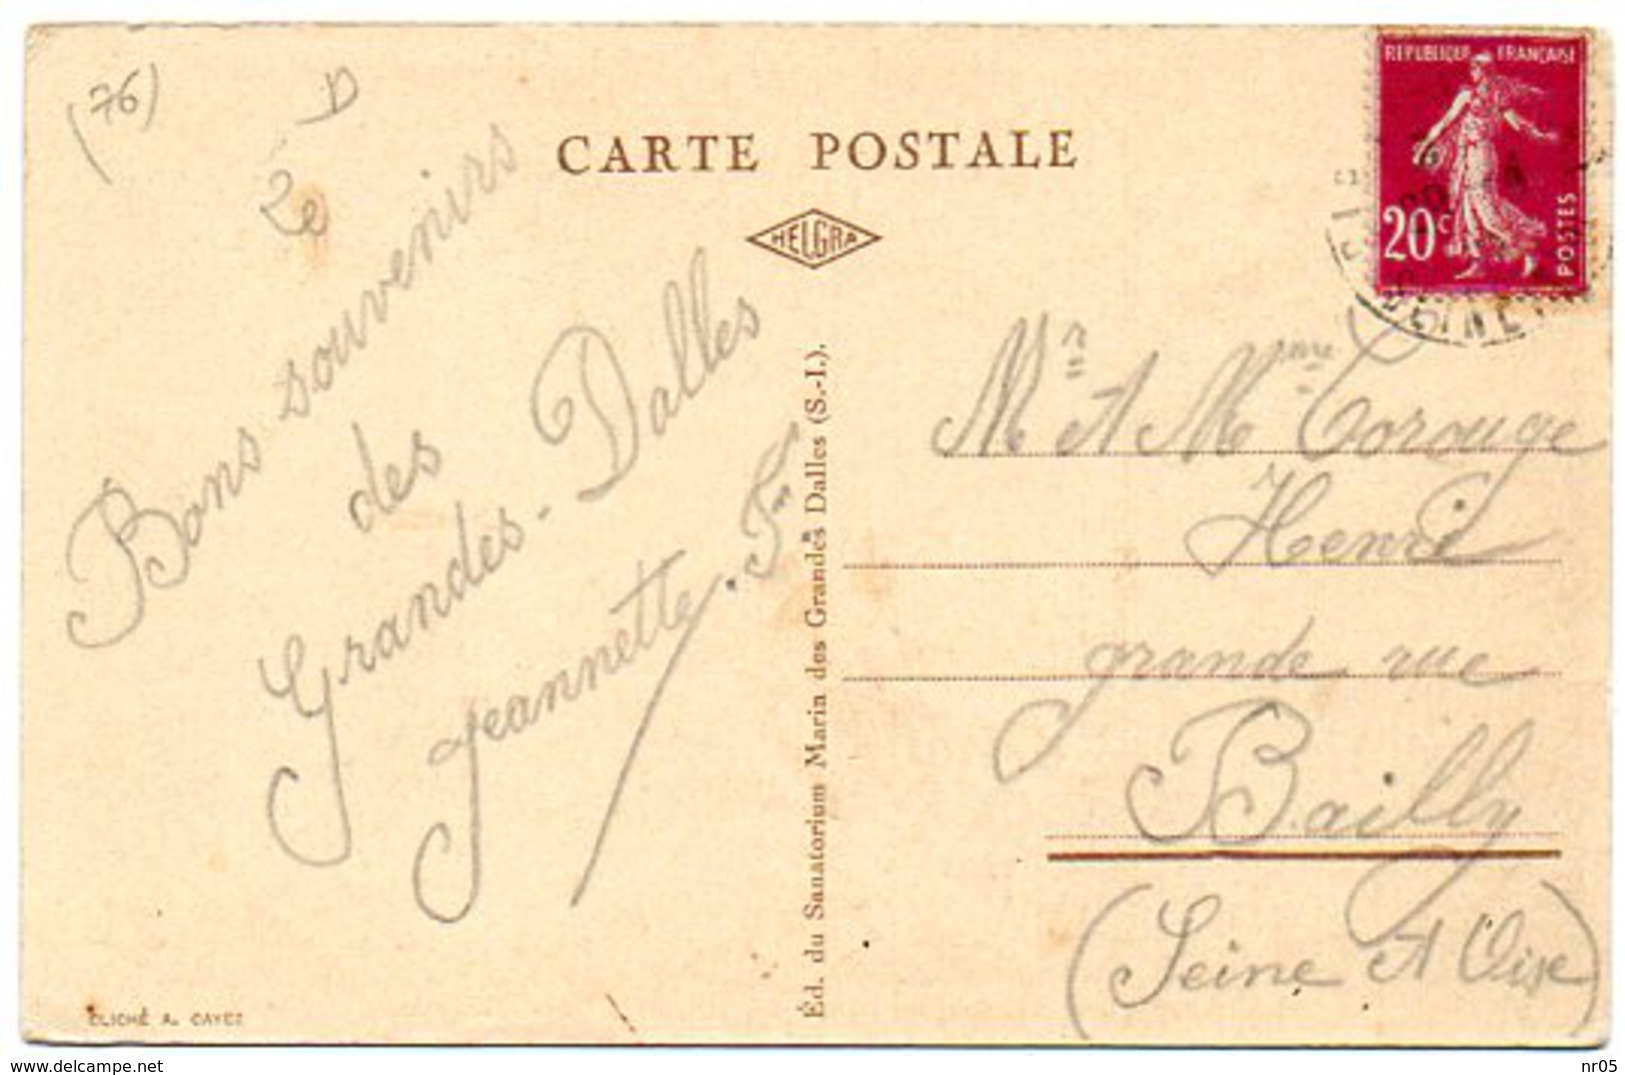 (76)
CARTE POSTALE
HELGRA
REPUBLIQUE FRANÇAISE
20c
POSTES
Bons souvenirs
des
Grandes-Dalles
Jeannette. F
Éd. du Sanatorium Marin des Grandes Dalles (S.-I.).
Mr et Mme Corouge
Henri
grande rue
Bailly
(Seine et Oise)
CLICHÉ A. CAYEZ
delcampe.net
nr05